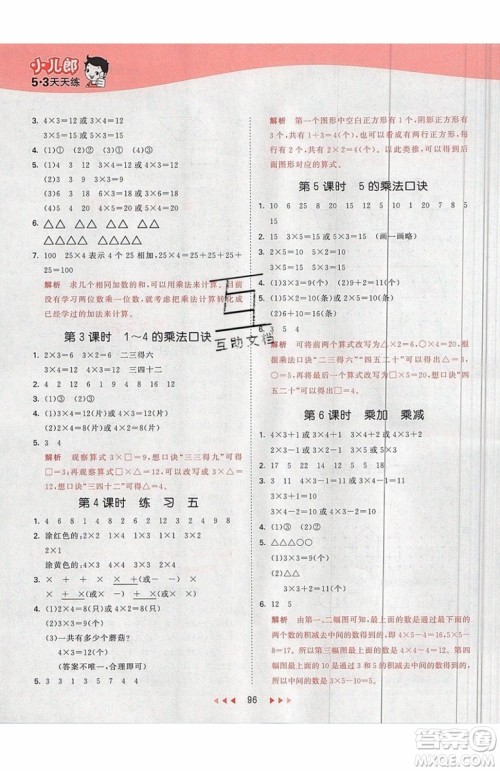 小儿郎
5·3天天练
3. 4×3=12或3×4=12
4. (1)① (2)②
5. (1)4 3 4×3=12(个)
(2)3 6 3×6=18(个)
(3)5 4 5×4=20(个)
6. △△ △△ △△ △△
△△△△ △△△△
7. 100 25×4表示4个25相加,25+25+25+
25=100
解析 求几个相同加数的和,可以用乘法来计算。目
前没学习两位数乘一位数,可以把乘法计算转化成
已经学过的加法来计算。
第3课时 1~4的乘法口诀
1. 2×3=6 3×2=6 二三得六
3×4=12 4×3=12 三四十二
3. (1)② (2)③
4. (1)4×2=8(个)
(2)4×4=16(个)
5. 3 4
解析 观察算式3×□=9,想口诀“三三得九”可得
□=3;根据□=3,可以推算出算式△×□=12就是
△×3=12,想口诀“三四十二”可得△=4。
第4课时 练习五
1. 4 9 6 16 4 8 3 8 8
2. 涂红色的:2×2 4×1 3+1
涂黄色的:2×4 4+4 4×2
3. × + + ×或(+ -) ×
+ × × +或(- ×) -
4. (1)2×4=8(只)或4×2=8(只)
(2)2×4=8(只)或4×2=8(只)
(3)一共有多少个蘑菇?
4×3=12(个)
(答案不唯一,合理即可)
5. 3 4 3 1 3 3 4 1
解析 第一个图形中空白正方形有1个,阴影正方形
有3个,共有4个,可以用1+3=4或2×2=4计算,
每个图形都可以用两种方法计算,按照规律可以写出
后面图形对应的算式。
第5课时 5的乘法口诀
1. 10 6 25 8 20 12 9 10 5 8
15
2. 15 3×5=15或5×3=15 (画一画略)
3. (1)③ (2)①
4. 3×5=15(元) 15<18 够
5. (1)5×4=20(个)
(2)3×5+3=18(个)或3×6=18(个)
6. 12 5 4 4
解析 前两个算式可以改写为△×2=10和△×□=20,
根据乘法口诀“二五一十”和“四五二十”可以得出
△=5,□=4。后两个算式可以改写为□×3=12和
△×□=20,根据乘法口诀“三四十二”和“四五
二十”可以得出□=4,△=5。
第6课时 乘加 乘减
1. 4×3+1 或 3×4+1 或 4×4-3
2. 3×3+1=10 或 2×3+4=10 或
4×3-2=10
3. (1)③ (2)② (3)①②
4. (1)3×3+2=11(个)
(2)5×3+1=16(个)
5. 2×4+3=11(人)
6. 12 5
解析 由第一、二幅图可知,最上面的数是下面的
两个数的积减去中间的数得到的,由此可以得出第
三幅图最上面的数是3×5-3=12。第四幅图最上
面的数和中间的数的和是下面的两个数的积,即
3×□=11+4=15,所以□里的数是5。
互助文档
96
答案圈
MXQE.COM